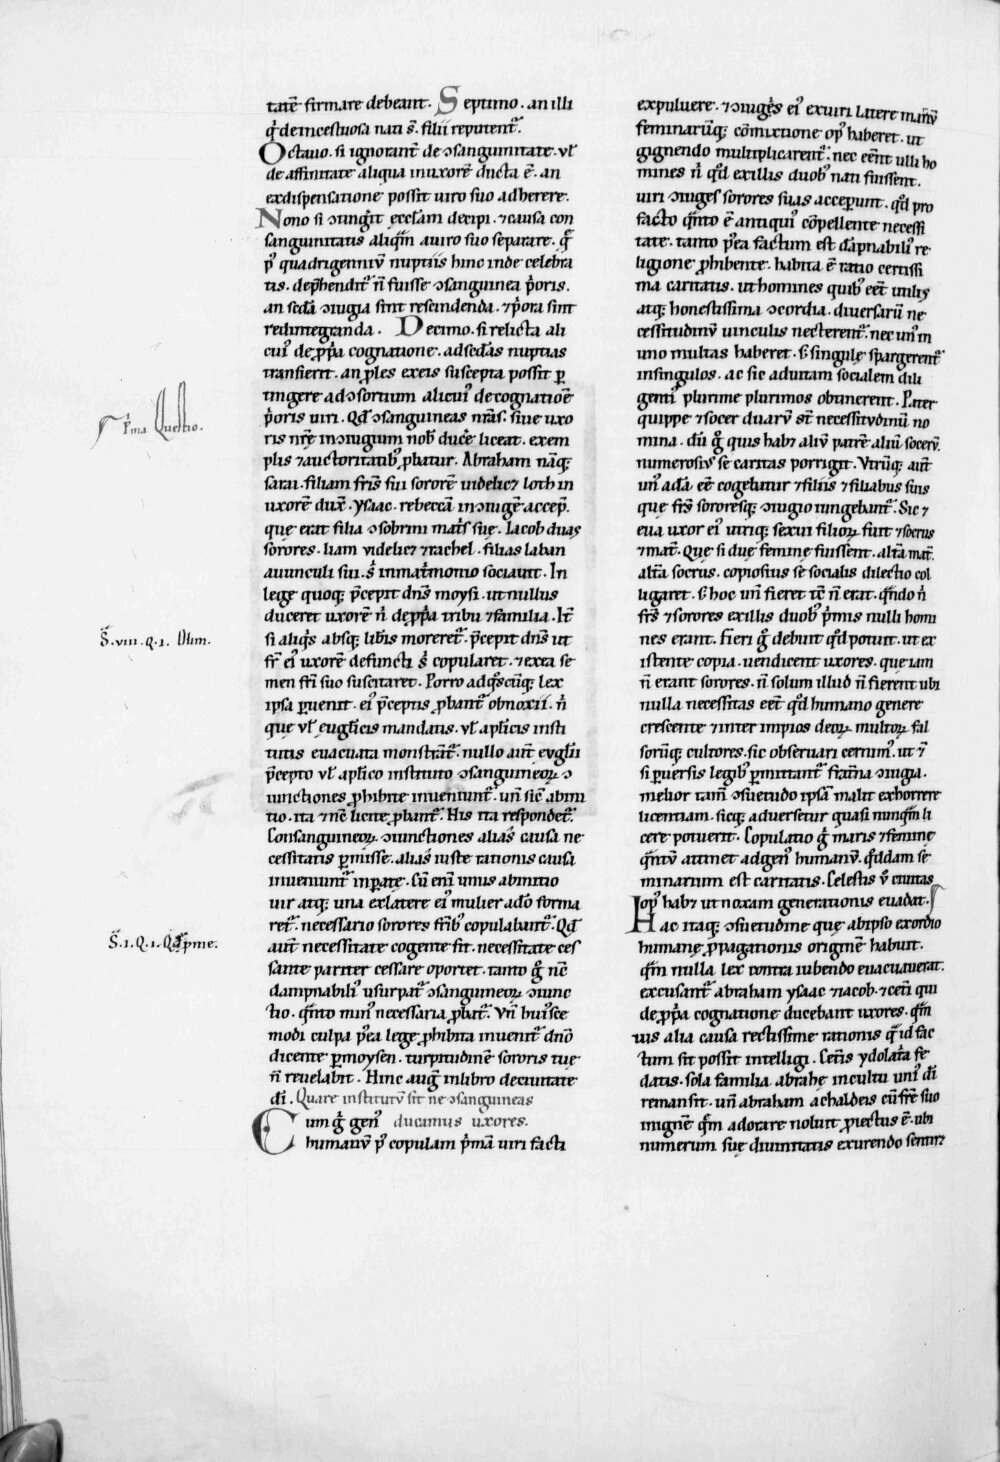 tatē firmare debeant. Septimo. an illi
q̇ de incestuosa nati s̄. filii reputent᷑.
Octauo. si ignorant᷑ de ↄsanguinitate. vl̓
de affinitate aliqua in uxorē ducta ē. an
ex dispensatione possit uiro suo adherere.
Nono si ↄtingit̓ ecclam decipi. ⁊ causa con
sanguinitatis aliq̄m a uiro suo separare. q̄
p̓ quadrigenniū nuptiis hinc inde celebra
tis. dep̄hendit᷑ n̄ fuisse ↄsanguinea p̓oris.
an sec̄da ↄiugia sint rescindenda. ⁊ p̓ora sint
redintegranda. Decimo. si relicta ali
cui᷒ de ꝓp̓a cognatione. ad sec̄das nuptias
transierit. an ꝓles ex eis suscepta possit ꝑ
tingere ad ↄsortium alicui᷒ de cognatiōe
p̓oris uiri. Qđ ↄsanguineas nr̄as. siue uxo
ris nr̄ę in ↄiugium nob᷒ ducē liceat. exem
plis ⁊ auctoritatib᷒ ꝓbatur. Abraham nāq;
sarai. filiam fr̄is sui sororē uidelicꝫ loth in
uxorē dux̄. Ysaac. rebeccā in ↄiugē accep̄.
que erat filia ↄsobrini mat̓s suę. Iacob duas
sorores. liam uidelicꝫ ⁊ rachel. filias laban
auunculi sui. s̓ in mat̓monio sociauit. In
lege quoq; p̄cepit dn̄s moysi. ut nullus
duceret uxorē n̄ de ꝓp̓a tribu ⁊ familia. It̄
si aliq̓s absq; lib̓is moreret᷑. p̄cepit dn̄s ut
fr̄ ei᷒ uxorē defuncti s̓ copularet. ⁊ ex ea se
men fr̄i suo suscitaret. Porro ad q̓scūq; lex
ipsa ꝑuenit. ei᷒ p̄ceptis ꝓbant᷑ obnoxii. n̓
que vl̓ euglicis mandatis. vl̓ apl̄icis insti
tutis euacuata monstrāt᷑. nullo aut̄ euglii
p̄cepto vl̓ apl̄ico instituto ↄsanguineoꝝ ↄ
iunctiones ꝓhibite inueniunt᷑. un̄ sic̄ ab ini
tio. ita ⁊ nc̄ licite ꝓbant᷑. His ita respondet᷑.
Consanguineoꝝ ↄiunctiones alias̓ causa ne
cessitatis ꝑmisse. alias̓ iuste rationis causa
inueniunt᷑ inpate. Cū eni᷒ unus ab initio
uir atq; una ex latere ei᷒ mulier a dō forma
ret᷑. necessario sorores fr̄ib᷒ copulabant᷑. Qđ
aut̄ necessitate cogente fit. necessitate ces
sante pariter cessare oportet. tanto g̓ nc̄
dampnabili᷒ usurpat᷑ ↄsanguineoꝝ ↄiunc
tio. q̄nto min᷒ necessaria ꝓbat᷑. Vn̄ hui᷒sce
modi culpa p᷒ea lege ꝓhibita inuenit᷑ dn̄o
dicente ꝑ moysen. turpitudinē sororis tuę
n̄ reuelabis. Hinc aug᷒ in libro de ciuitate
di᷒. Quare institutū sit ne ↄsanguineas
Cum g̓ gen᷒ ducamus uxores.
humanū p᷒ copulam p̓mā uiri facti
S.p̓ma Questio.
S̄.viii.Q.i. Olim.
S̄.i.Q.i.Qđ pme.
expuluere. ⁊ ↄiuges̓ ei᷒ ex uiri latere mariū
feminarūq; cōmixtione op᷒ haberet. ut
gignendo multiplicarent᷑. nec eēnt ulli ho
mines n̓ qđ ex illis duob᷒ nati fuissent.
uiri ↄiuges sorores suas acceperunt. qđ pro
facto q̄nto ē antiqui᷒ cōpellente necessi
tate. tanto p᷒ea factum est dāpnabili᷒ re
ligione ꝓhibente. habita ē ratio certissi
ma caritatis. ut homines quib᷒ eēt utilis
atq; honestissima ↄcordia. diuersarū ne
cessitudinū uinculis necterent᷑. nec un᷒ in
uno multas haberet. s̓ singulę spargerent᷑
in singulos. ac sic ad uitam socialem dili
genti᷒ plurime plurimos obtinerent. Pater
quippe ⁊ socer duarū st̄ necessitudinū no
mina. dū g̓ quis habꝫ aliū patrē aliū socerū.
numerosi᷒ se caritas porrigit. Vtrūq; aut̄
un᷒ adā eē cogebatur ⁊ filiis ⁊ filiabus suis
que fr̄s sororesq; ↄiugio iungebant᷑. Sic ⁊
eua uxor ei᷒ utriq; sexui filioꝝ fuit ⁊ socrus
⁊ mat̄. Que si due femine fuissent. alt̄a mat̄.
alt̄a socrus. copiosius se socialis dilectio col
ligaret. s̓ hoc un̄ fieret tc̄ n̄ erat. q̄ndo n̓
fr̄s ⁊ sorores ex illis duob᷒ p̓mis nulli homi
nes erant. Fieri g̓ debuit qđ potuit. ut ex
istente copia. uendicent uxores. que iam
n̄ erant sorores. n̄ solum illud n̄ fierent ubi
nulla necessitas eēt qđ humano genere
crescente ⁊ inter impios deoꝝ multoꝝ fal
sorūq; cultores. sic obseruari cernim᷒. ut ⁊
si ꝑuersis legib᷒ ꝑmittant᷑ frat̄na ↄiugia.
melior tam̄ ↄsuetudo ipsam malit exhorrere
licentiam. sicq; aduersetur quasi nunq̄m li
cere potuerit. Copulatio g̓ maris ⁊ feminę
q̄ntū attinet ad gen᷒ humanū. q̄ddam se
minarium est caritatis. Celestis ū ciuitas
op᷒ habꝫ ut noxam generationis euadat.
Hac itaq; ↄsuetudine que ab ipso exordio
humanę ꝓpagationis originē habuit.
q̄m nulla lex contra iubendo euacuauerat.
excusant᷑ abraham ysaac ⁊ iacob. ⁊ cet̓i qui
de ꝓp̓a cognatione ducebant uxores. q̄m
uis alia causa rectissime rationis q̄ id fac
tum sit possit intelligi. Cet̓is ydolat̓a fe
datis. sola familia abrahę in cultu uni᷒ di᷒
remansit. un̄ abraham a chaldeis cū fr̄e suo
mignē q̄m adorare noluit proiectus ē. ubi
numerum suę diuinitatis exurendo sentirꝫ